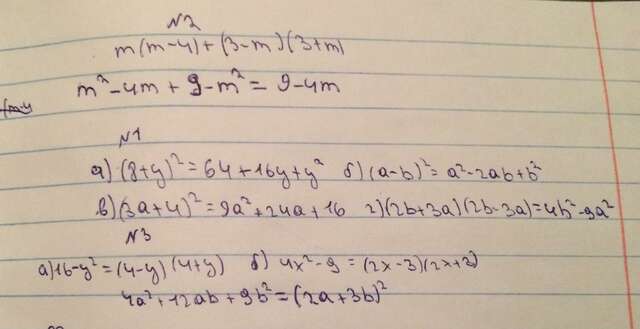 N2
m(m-4)+(3-m)(3+m)
m²-4m+9-m²=9-4m
N1
а)(8+y)²=64+16y+y² б)(a-b)²=a²-2ab+b²
в)(3a+4)²=9a²+24a+16 г)(2b+3a)(2b-3a)=4b²-9a²
N3
а)16-y²=(4-y)(4+y) б) 4x²-9=(2x-3)(2x+3)
4a²+12ab+9b²=(2a+3b)²